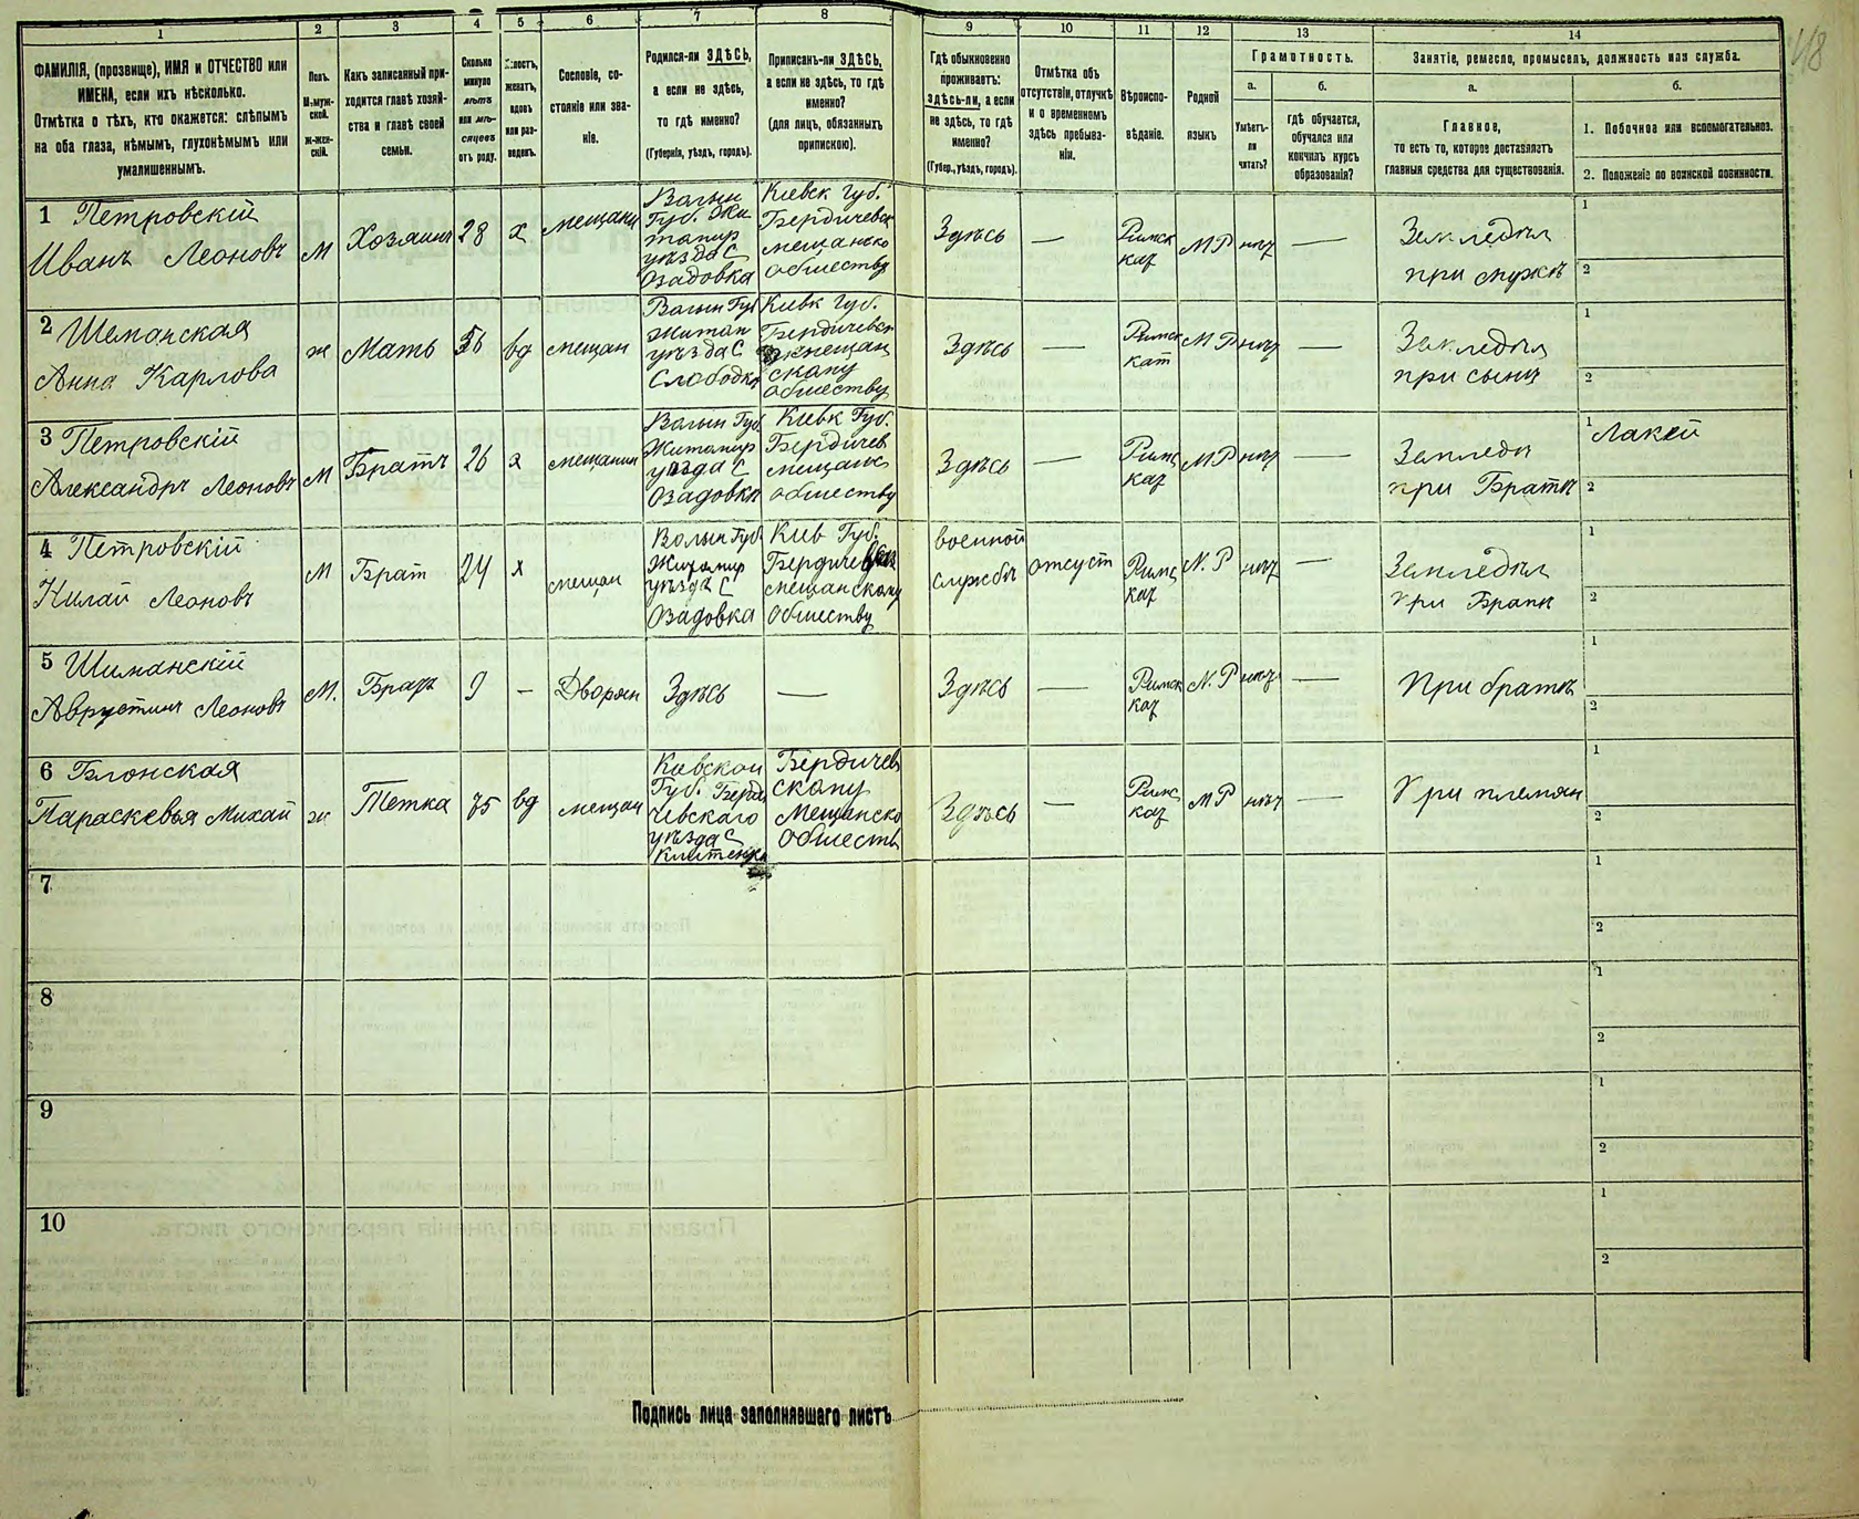 1
2
3
4
5
6
7
8
9
10
11
12
13
14
ФАМИЛІЯ, (прозвище), ИМЯ и ОТЧЕСТВО или
ИМЕНА, если ихъ нѣсколько.
Отмѣтка о тѣхъ, кто окажется: слѣпымъ
на оба глаза, нѣмымъ, глухонѣмымъ или
умалишеннымъ.
Полъ.
М-муж-
ской.
Ж-жен-
скій.
Какъ записанный при-
ходится главѣ хозяй-
ства и главѣ своей
семьи.
Сколько
минуло
лѣтъ
или мѣ-
сяцевъ
отъ роду.
Холостъ,
женатъ,
вдовъ
или раз-
веденъ.
Сословіе, со-
стояніе или зва-
ніе.
Родился-ли ЗДѢСЬ,
а если не здѣсь,
то гдѣ именно?
(Губернія, уѣздъ, городъ).
Приписанъ-ли ЗДѢСЬ,
а если не здѣсь, то гдѣ
именно?
(для лицъ, обязанныхъ
припискою).
Гдѣ обыкновенно
проживаетъ:
здѣсь-ли, а если
не здѣсь, то гдѣ
именно?
(Губер., уѣздъ, городъ).
Отмѣтка объ
отсутствіи, отлучкѣ
и о временномъ
здѣсь пребыва-
ніи.
Вѣроиспо-
вѣданіе.
Родной
языкъ
Грамотность.
а.
Умѣетъ-
ли
читать?
б.
гдѣ обучается,
обучался или
кончилъ курсъ
образованія?
Занятіе, ремесло, промыселъ, должность или служба.
а.
Главное,
то есть то, которое доставляетъ
главныя средства для существованія.
б.
1. Побочное или вспомогательное.
2. Положеніе по воинской повинности.
1 Петровскій
Иванъ Леоновъ
М
Хозяинъ
28
х
мещани
Волын
Губ. Жи
томир
уѣзда С
Озадовка
Кіевск Губ.
Бердичевск
мещанско
обществу
Здѣсь
—
Римск
кат
М Р
нѣт
—
Земледѣл
при
1
2
2 Шеманская
Анна Карлова
ж
Мать
56
вд
мещан
Волын Губ
Житом
уѣзда С
Слободка
Кіевк Губ.
Бердичевск
мещан
скому
обществу
Здѣсь
—
Римск
кат
М Р
нѣт
—
Земледѣл
при сынѣ
1
2
3 Петровскій
Александръ Леоновъ
М
Братъ
26
х
мещанин
Волын Губ.
Житомир
уѣзда С
Озадовка
Кіевк Губ.
Бердичев
мещанс
обществу
Здѣсь
—
Римс
кат
М Р
нѣт
—
Земледѣ
при Братѣ
1 Лакей
2
4 Петровскій
Леоновъ
М
Брат
24
х
мещан
Волын Губ
Житомир
уѣзда С
Озадовка
Кіев Губ.
Бердичевск
мещанскому
обществу
военной
службѣ
отсуст
Римс
кат
М. Р
нѣт
—
Земледѣл
При Братѣ
1
2
5 Шиманскій
Августинъ Леоновъ
М.
Братъ
9
—
Дворян
Здѣсь
—
Здѣсь
—
Римск
кат
М. Р
нѣт
—
При братѣ
1
2
6 Блонская
Параскевья Михай
ж
Тетка
75
вд
мещан
Киевской
Губ. Берди
чевскаго
уѣзда С
Бердичев
скому
Мещанско
обществ
Здѣсь
—
Римс
кат
М Р
нѣт
—
При племян
1
2
7
1
2
8
1
2
9
1
2
10
1
2
Подпись лица заполнявшаго листъ